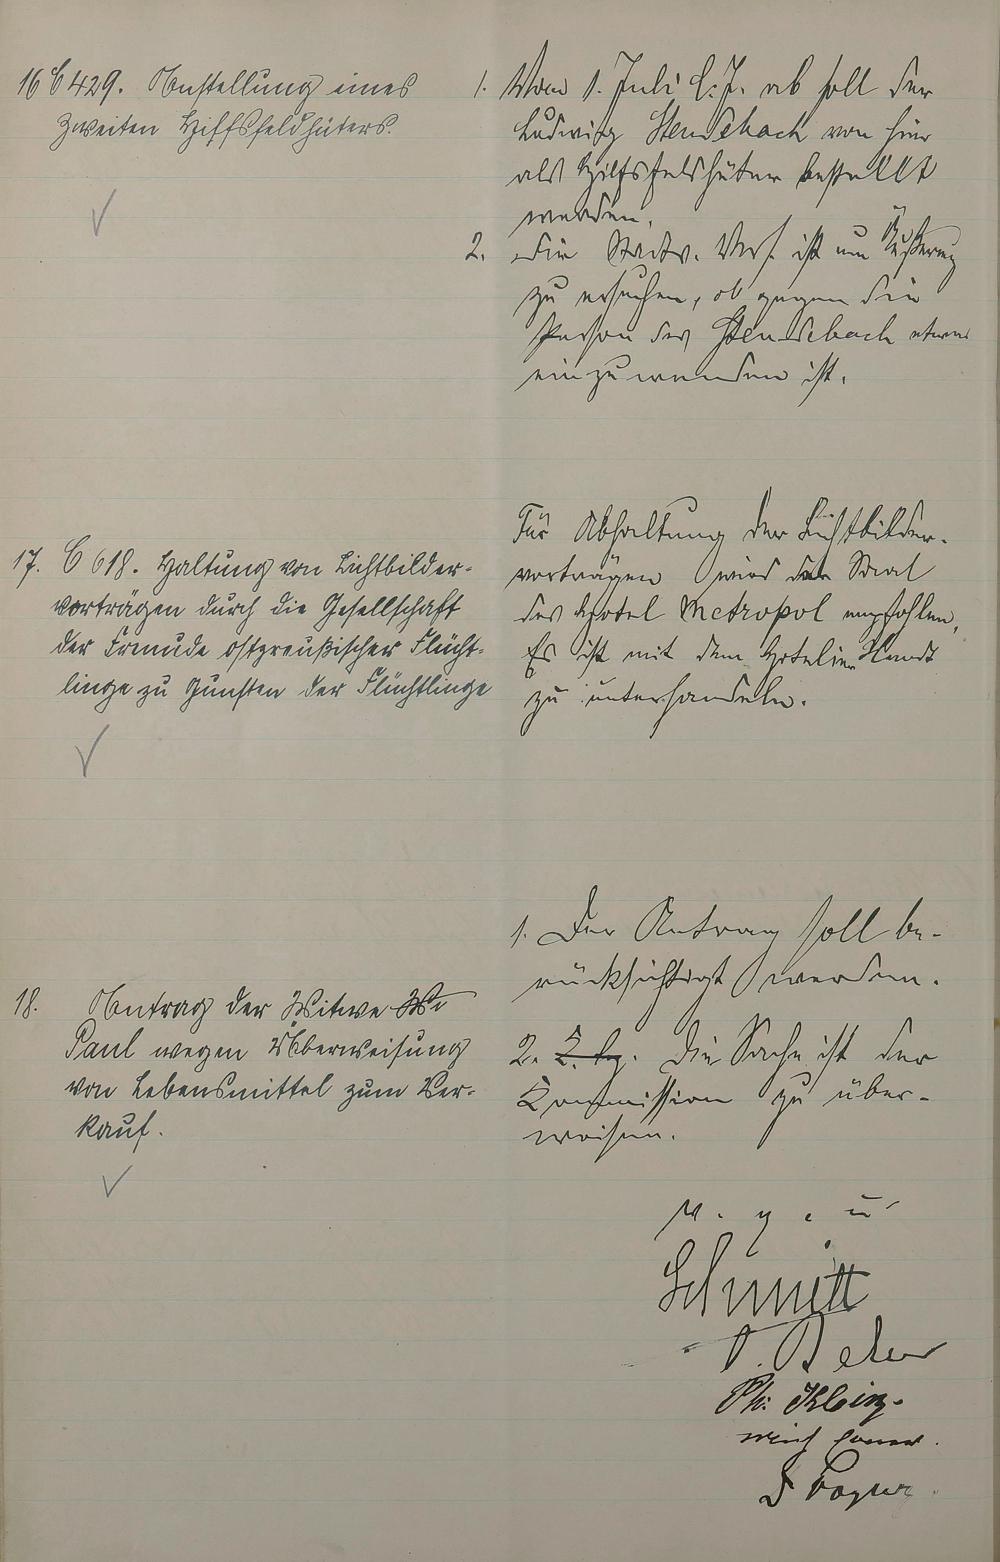 16 C 429. Anstellung eines
zweiten Hilfsfeldhüters.
1. Vom 1. Juli l. J. ab soll der
Ludwig von hier
als Hilfsfeldhüter bestellt
werden.
2. Die Stadtv. Vers. ist um Äußerung
zu ersuchen, ob gegen die
Person des etwas
einzuwenden ist.
17. C 618. Haltung von Lichtbilder-
vorträgen durch die Gesellschaft
der Freunde ostpreußischer Flücht-
linge zu Gunsten der Flüchtlinge
Für Abhaltung der Lichtbilder-
vorträgen wird der Saal
des Hotel Metropol empfohlen,
Es ist mit dem Hotelier
zu unterhandeln.
18. Antrag der Witwe We
Paul wegen Überweisung
von Lebensmittel zum Ver-
kauf.
1. Der Antrag soll be-
rücksichtigt werden.
2. Die Sache ist der
Kommission zu über-
weisen.
v. g. u.
Schmitt
Ph. Klein